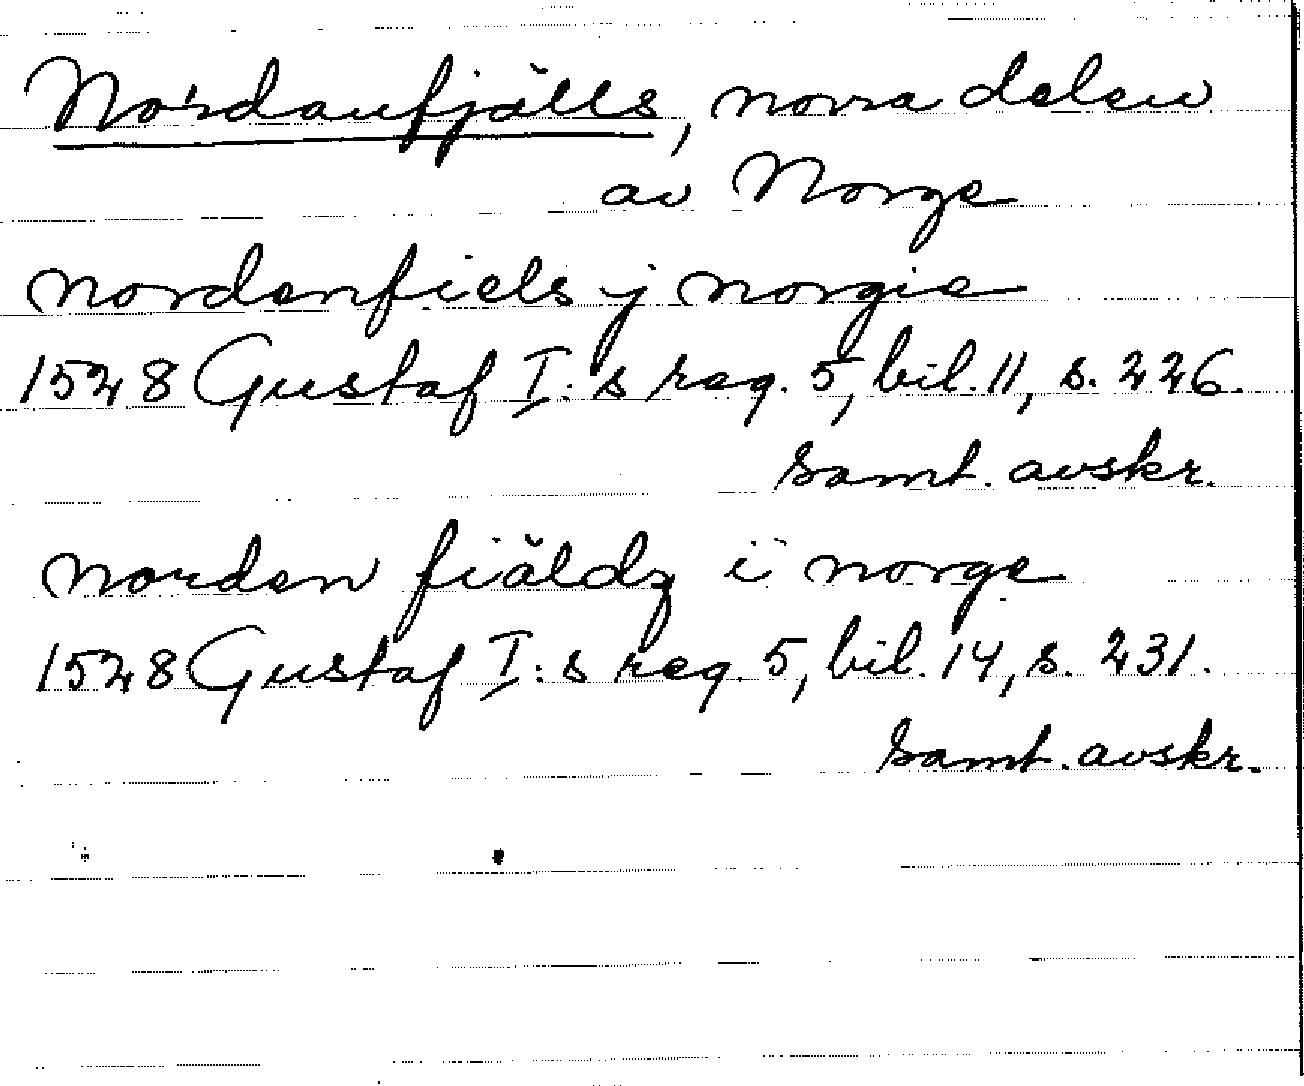 Nordanfjälls, norra delen
av Norge
nordenfiels j norgie
1528 Gustaf I:s reg. 5, bil. 11, s. 226.
Samt. avskr.
norden fiäldz i norge
1528 Gustaf I:s reg. 5, bil. 14, s. 231.
Samt. avskr.